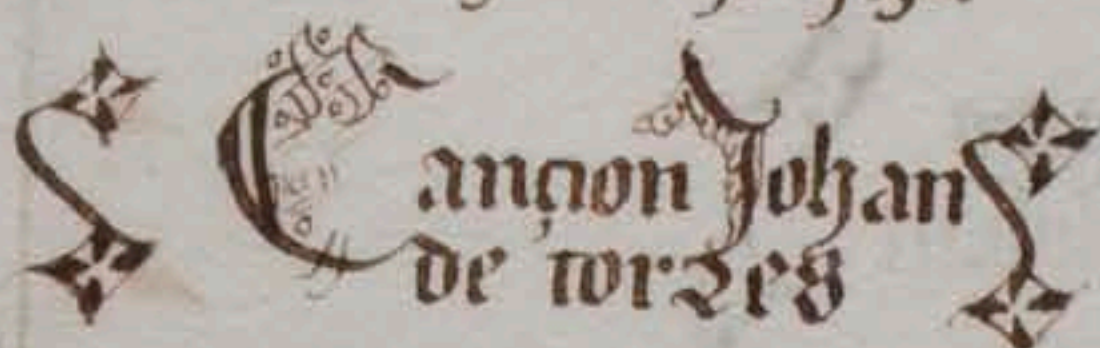 Cançion Johan
de torres